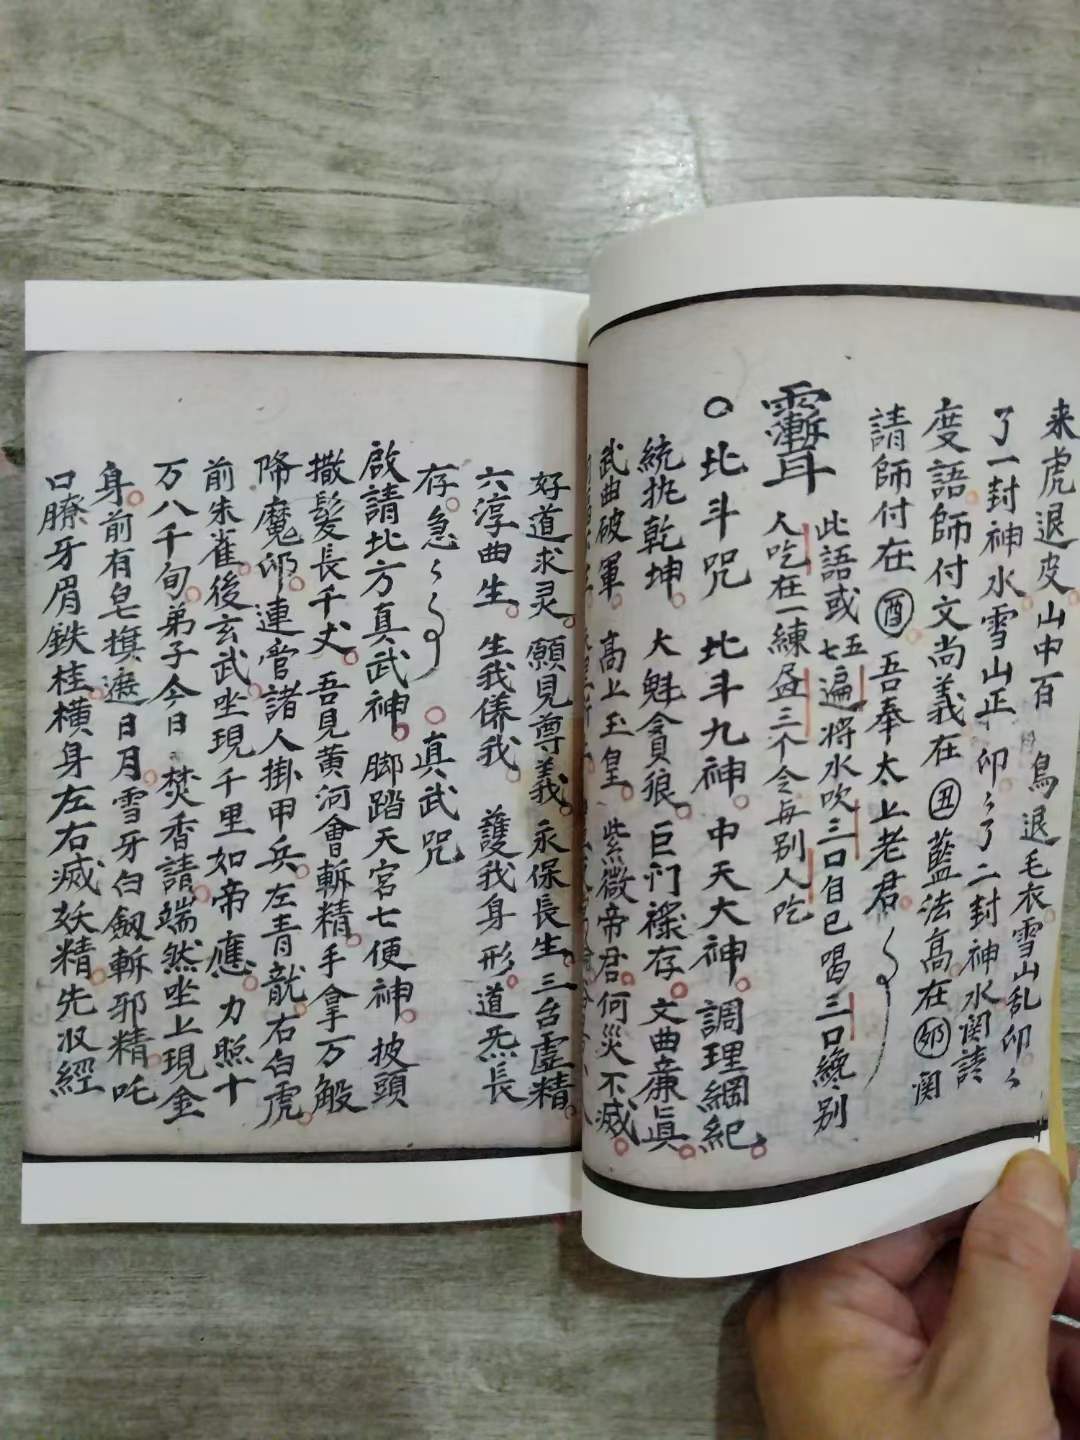 来虎退皮。山中百鳥退毛衣。雪山乱卯〻
了一封神水。雪山正卯〻了二封神水閔請
度語。師付文尚義在丑藍法高在卯閔
請師付在酉。吾奉太上老君。
此語或七五遍將水吹三口自己喝三口纔別
人吃在一練昼三个令毎別人吃
○北斗咒 北斗九神。中天大神。調理綱紀。
統执乾坤。大魁貪狼。巨门祿存。文曲廉真。
武曲破軍。高上玉皇。紫微帝君。何災不滅。
好道求灵。願見尊義。永保長生。三台虛精。
六淳曲生。生我俻我。護我身形。道炁長
存。急〻 ○真武咒
啟請北方真武神。脚踏天宮七便神。披頭
撒髮長千丈。吾見黄河會斬精。手拿万般
降魔卯。連菅諸人掛甲兵。左青龍。右白虎。
前朱雀。後玄武。坐現千里如帝應。力照十
万八千旬。弟子今日焚香請。端然坐上現金
身。前有皂旗遮日月。雪牙白劔斬邪精。吒
口獠牙眉鉄桂。橫身左右滅妖精。先収經